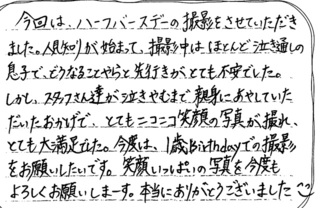 今回は、ハーフバースデーの撮影をさせていただき
ました。人見知りが始まって、撮影中はほとんど泣き通しの
息子で、どうなることやらと先行きがとても不安でした。
しかし、スタッフさん達が泣きやむまで親身にあやしていた
だいたおかげで、とてもニコニコ笑顔の写真が撮れ、
とても大満足でした。今度は、1歳Birthdayでの撮影
をお願いしたいです。笑顔いっぱいの写真を今度も
よろしくお願いしまーす。本当にありがとうございました